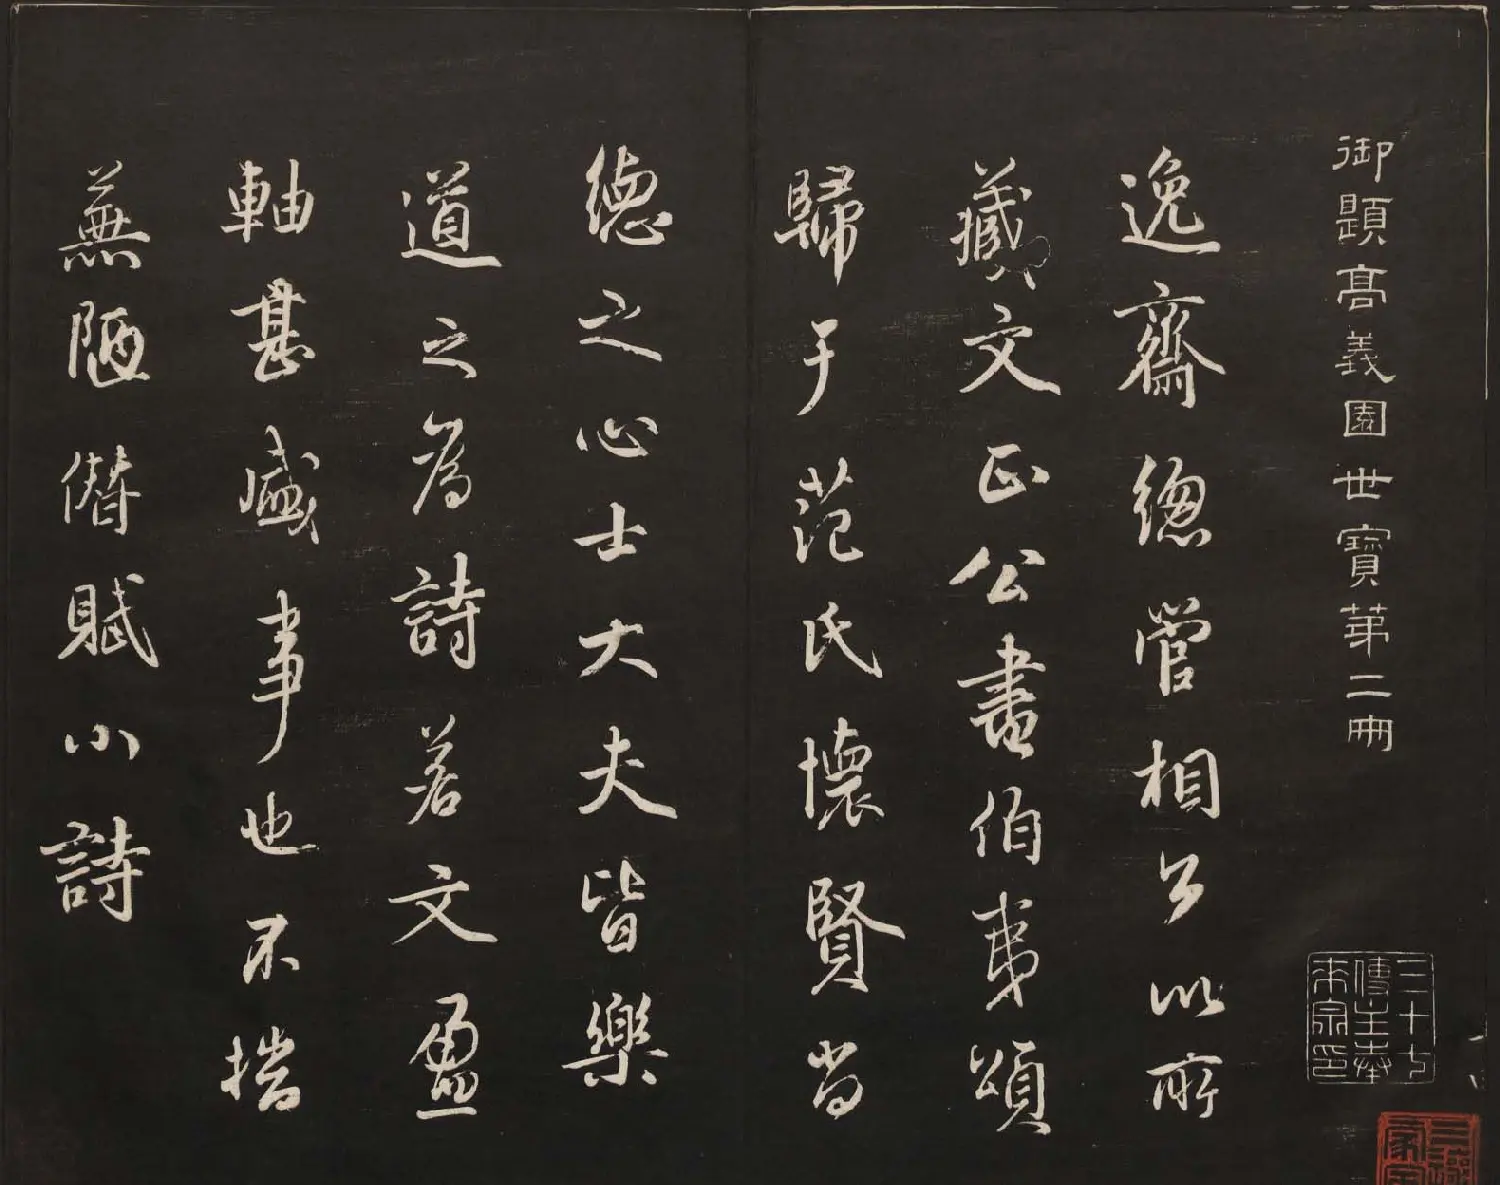 御題高義園世寶第二冊
逸齋總管相公以所
藏文正公書伯夷頌
歸于范氏懷賢尚
德之心士大夫皆樂
道之為詩若文盈
軸甚盛事也不揣
蕪陋僭賦小詩
三十七
傳主奉
宋宗印